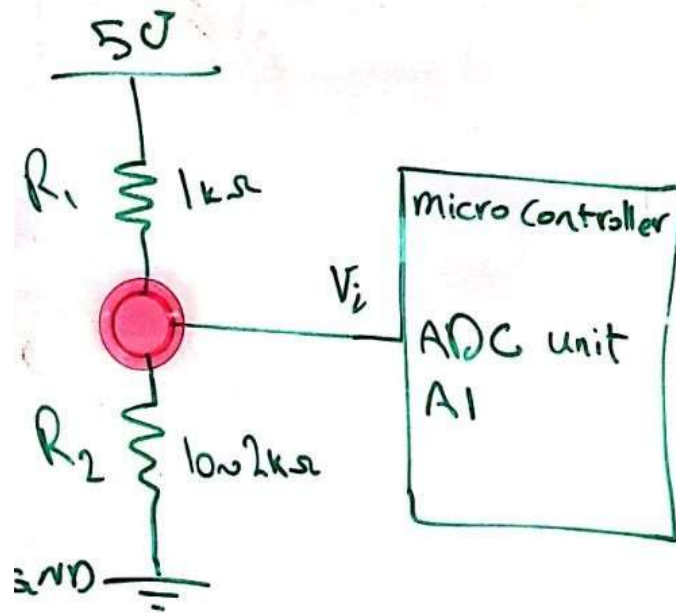 5V
R1
1kΩ
Vi
micro Controller
ADC unit
A1
R2
10~2kΩ
GND